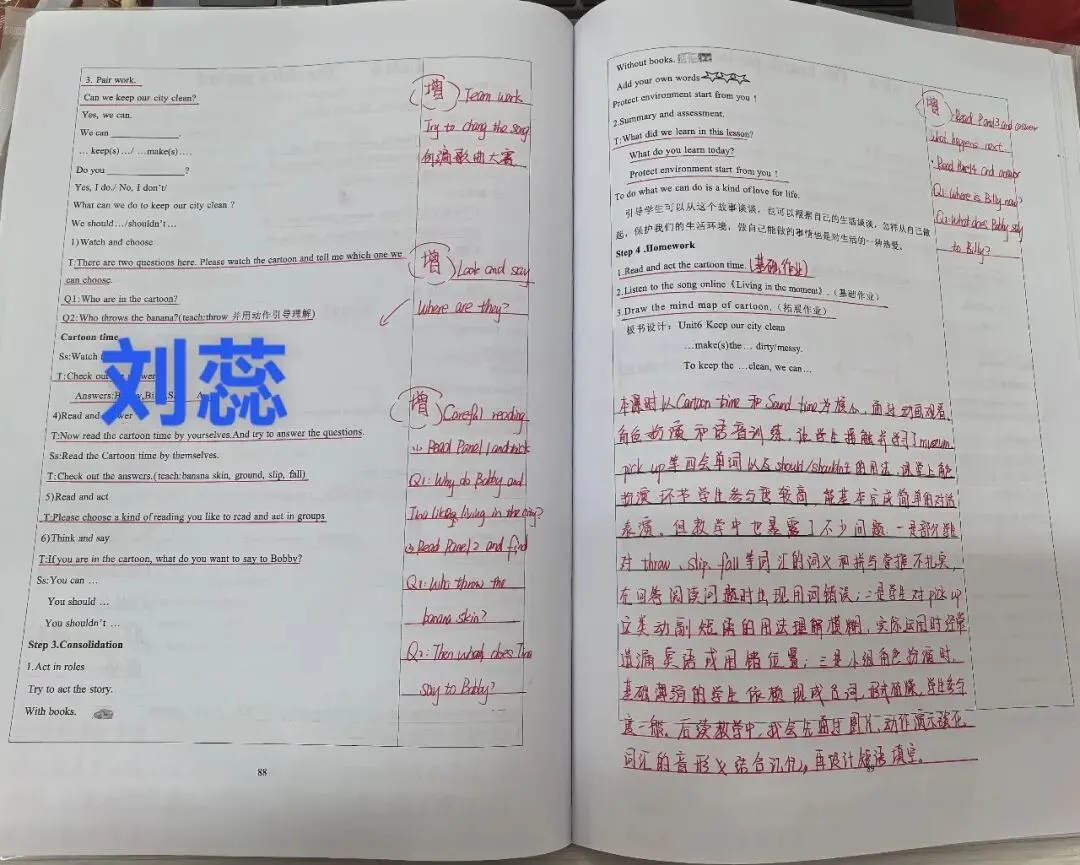 3. Pair work.
Can we keep our city clean?
Yes, we can.
We can ____________.
… keep(s) …/ …make(s)….
Do you ______________?
Yes, I do./ No, I don't/
What can we do to keep our city clean ?
We should …/shouldn't…
1)Watch and choose
T:There are two questions here. Please watch the cartoon and tell me which one we
can choose.
Q1: Who are in the cartoon?
Q2: Who throws the banana?(teach:throw 并用动作引导理解)
Cartoon time
Ss:Watch
T:Check out
Answers:B
4)Read and
T:Now read the cartoon time by yourselves.And try to answer the questions.
Ss:Read the Cartoon time by themselves.
T:Check out the answers.(teach:banana skin, ground, slip, fall)
5)Read and act
T:Please choose a kind of reading you like to read and act in groups
6)Think and say
T:If you are in the cartoon, what do you want to say to Bobby?
Ss:You can …
You should …
You shouldn't …
Step 3.Consolidation
1.Act in roles
Try to act the story.
With books.
88
刘蕊
增 Team work
Try to chang the song
创编歌曲大赛
增 Look and say
Where are they?
增 Careful reading
① Read Panel 1 and
Q1: Why do Bobby and
Tina like living in the city?
② Read Panel 2 and find
Q1: Who throw the
banana skin?
Q2: Then what does Tina
say to Bobby?
Without books.
Add your own words
Protect environment start from you !
2.Summary and assessment.
T:What did we learn in this lesson?
What do you learn today?
Protect environment start from you !
To do what we can do is a kind of love for life.
引导学生可以从这个故事谈谈，也可以根据自己的生活谈谈，怎样从自己做
起，保护我们的生活环境，做自己能做的事情也是对生活的一种热爱。
Step 4 .Homework
1.Read and act the cartoon time.(基础作业)
2.Listen to the song online《Living in the moment》.（基础作业）
3.Draw the mind map of cartoon.（拓展作业）
板书设计：Unit6 Keep our city clean
…make(s)the… dirty/messy.
To keep the …clean, we can…
增 Read Panel 3 and answer
what happens next.
Read Panel 4 and answer
Q1: Where is Billy now?
Q2: What does Bobby say
to Billy?
本课时以Cartoon time 和 Sound time为核心，通过动画观看、
角色扮演和语音训练，让学生接触并学习了museum,
pick up等四会单词以及should/shouldn't的用法，课堂上角色
扮演环节学生参与度较高，能基本完成简单的对话
表演。但教学中也暴露了不少问题。一是部分学生
对throw、slip、fall等词汇的词义和拼写掌握不扎实，
在回答阅读问题时出现用词错误；二是学生对pick up
这类动副短语的用法理解模糊，实际运用时经常
遗漏宾语或用错位置；三是小组角色扮演时，
基础薄弱的学生依赖现成台词，形式破碎，学生参与
度一般。后续教学中，我会先通过图片、动作演示强化
词汇的音形义结合记忆，再设计短语填空。